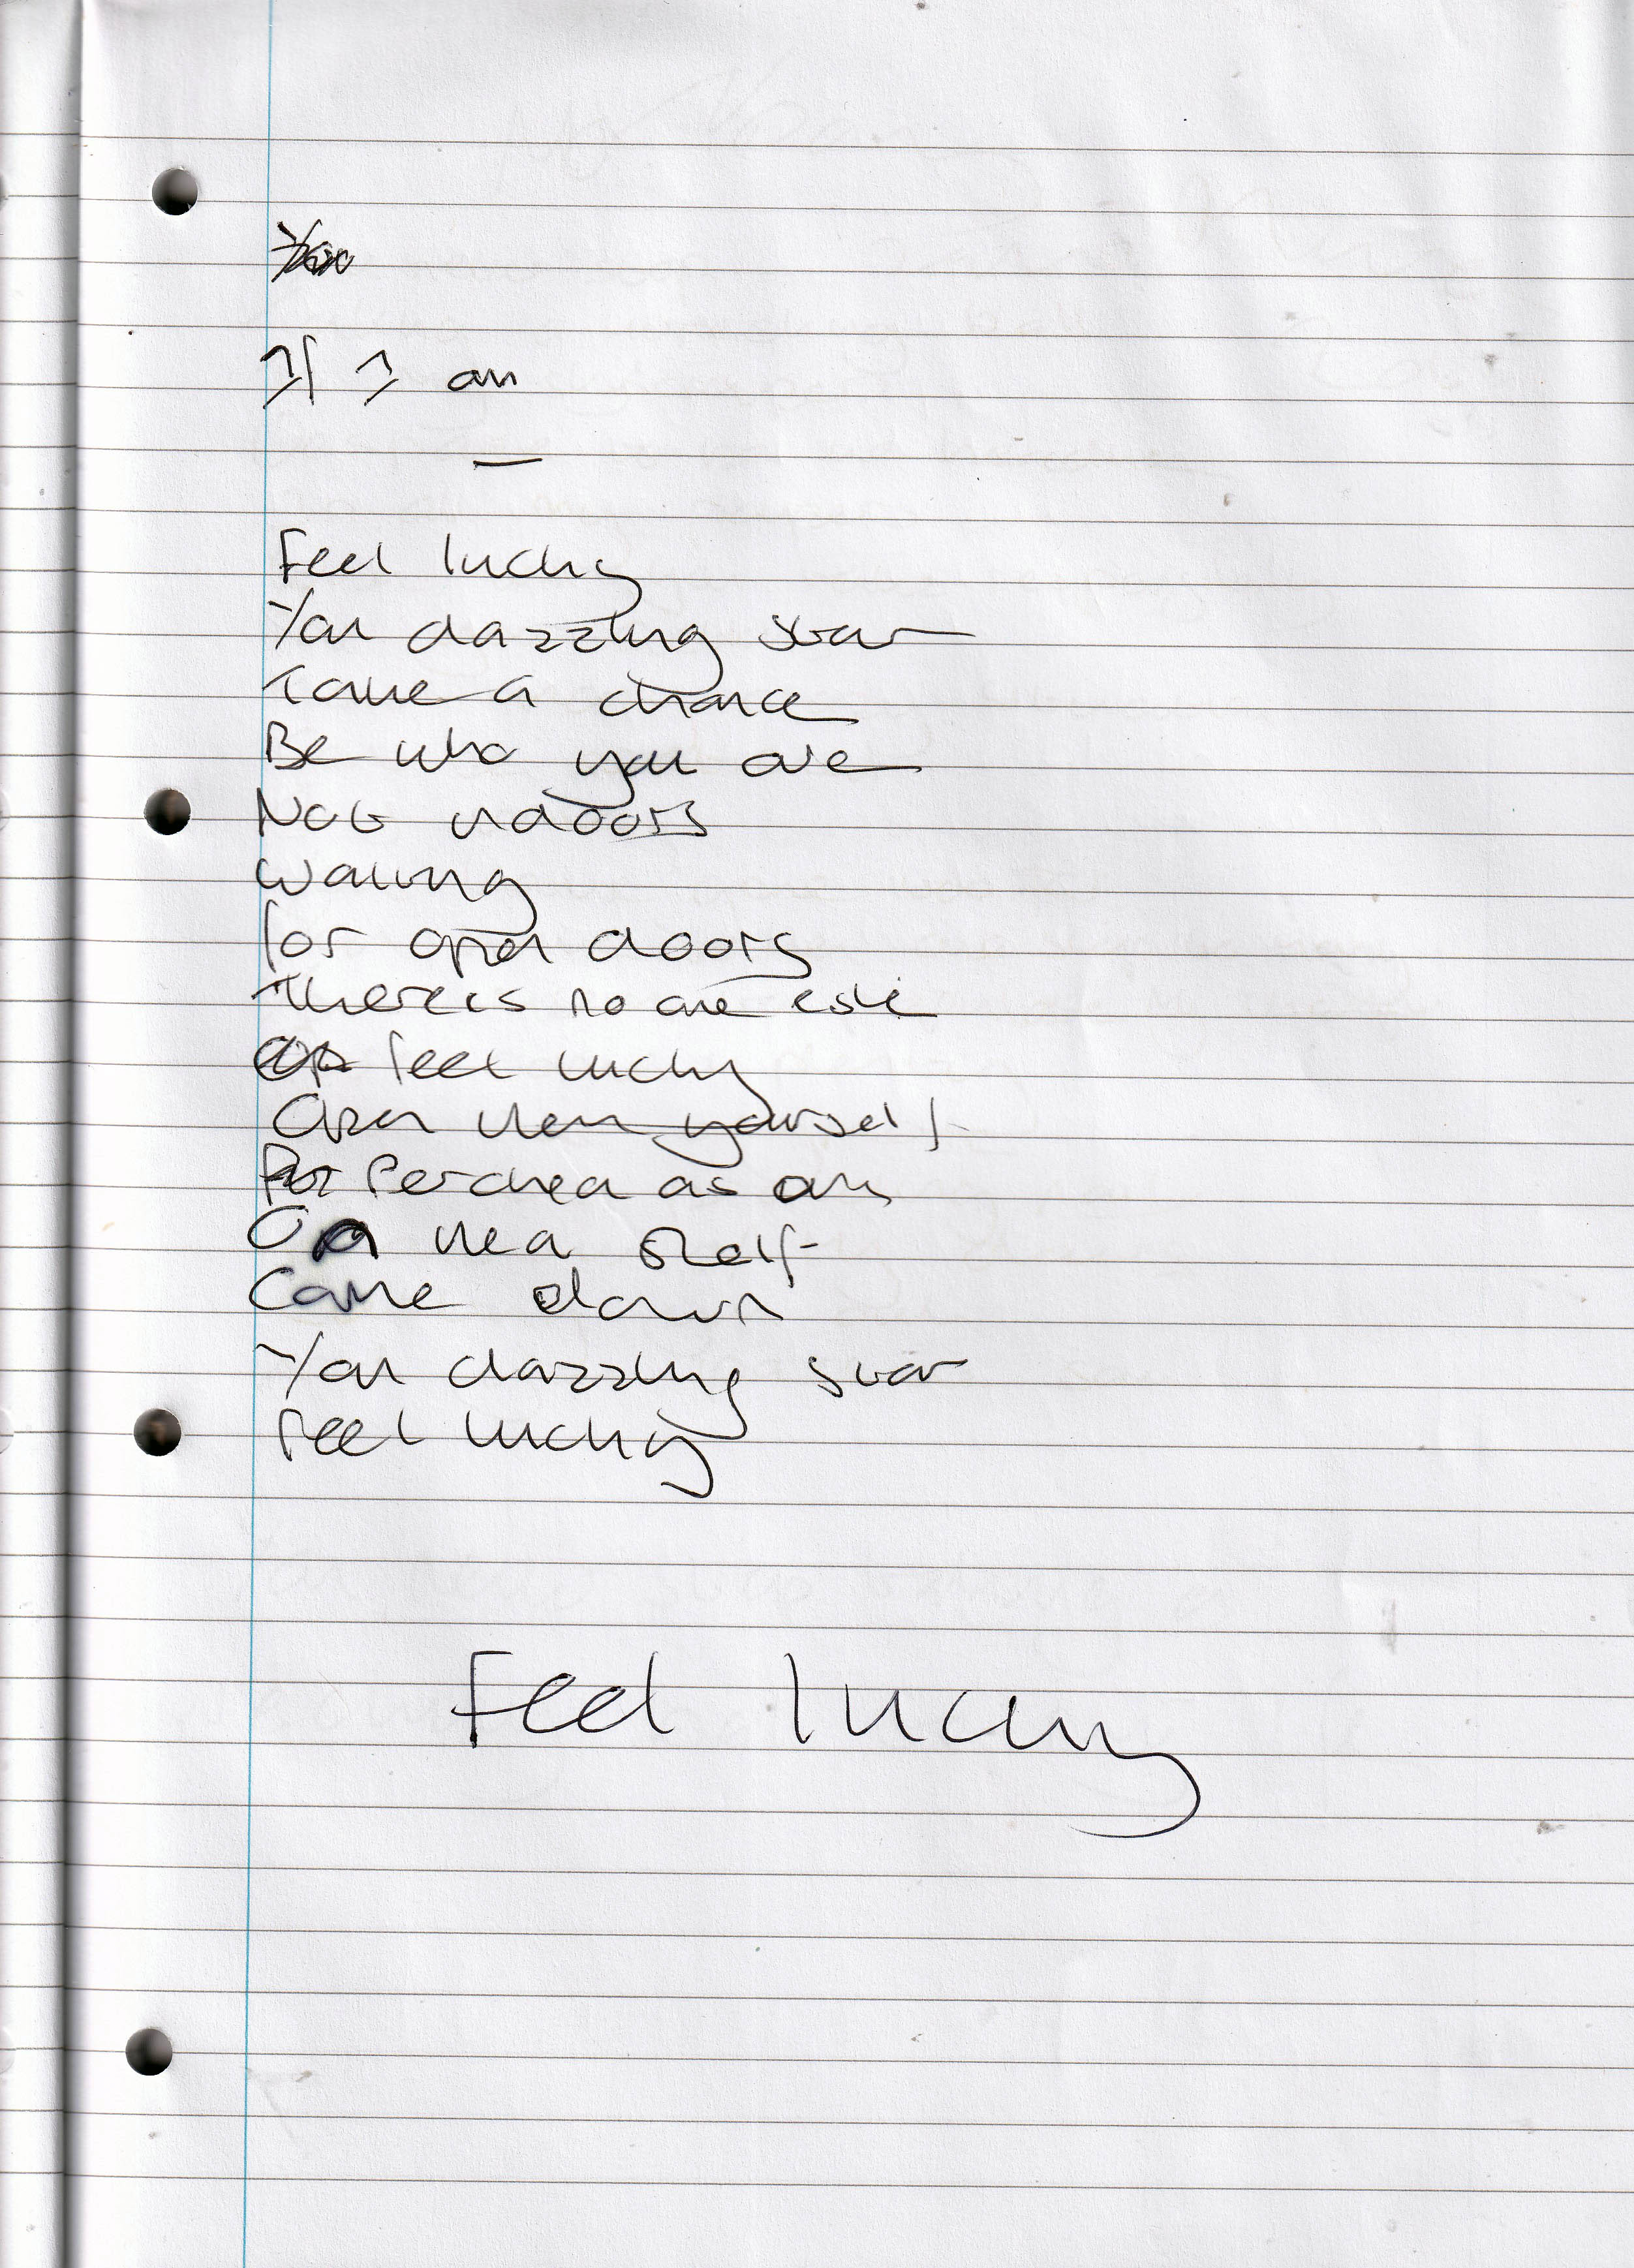 If I am
—
Feel lucky
You dazzling star
Take a chance
Be who you are
Not indoors
Waiting
for open doors
There is no one else
feel lucky
Open them yourself
Perched as on
On the a shelf
Come down
You dazzling star
feel lucky
Feel lucky